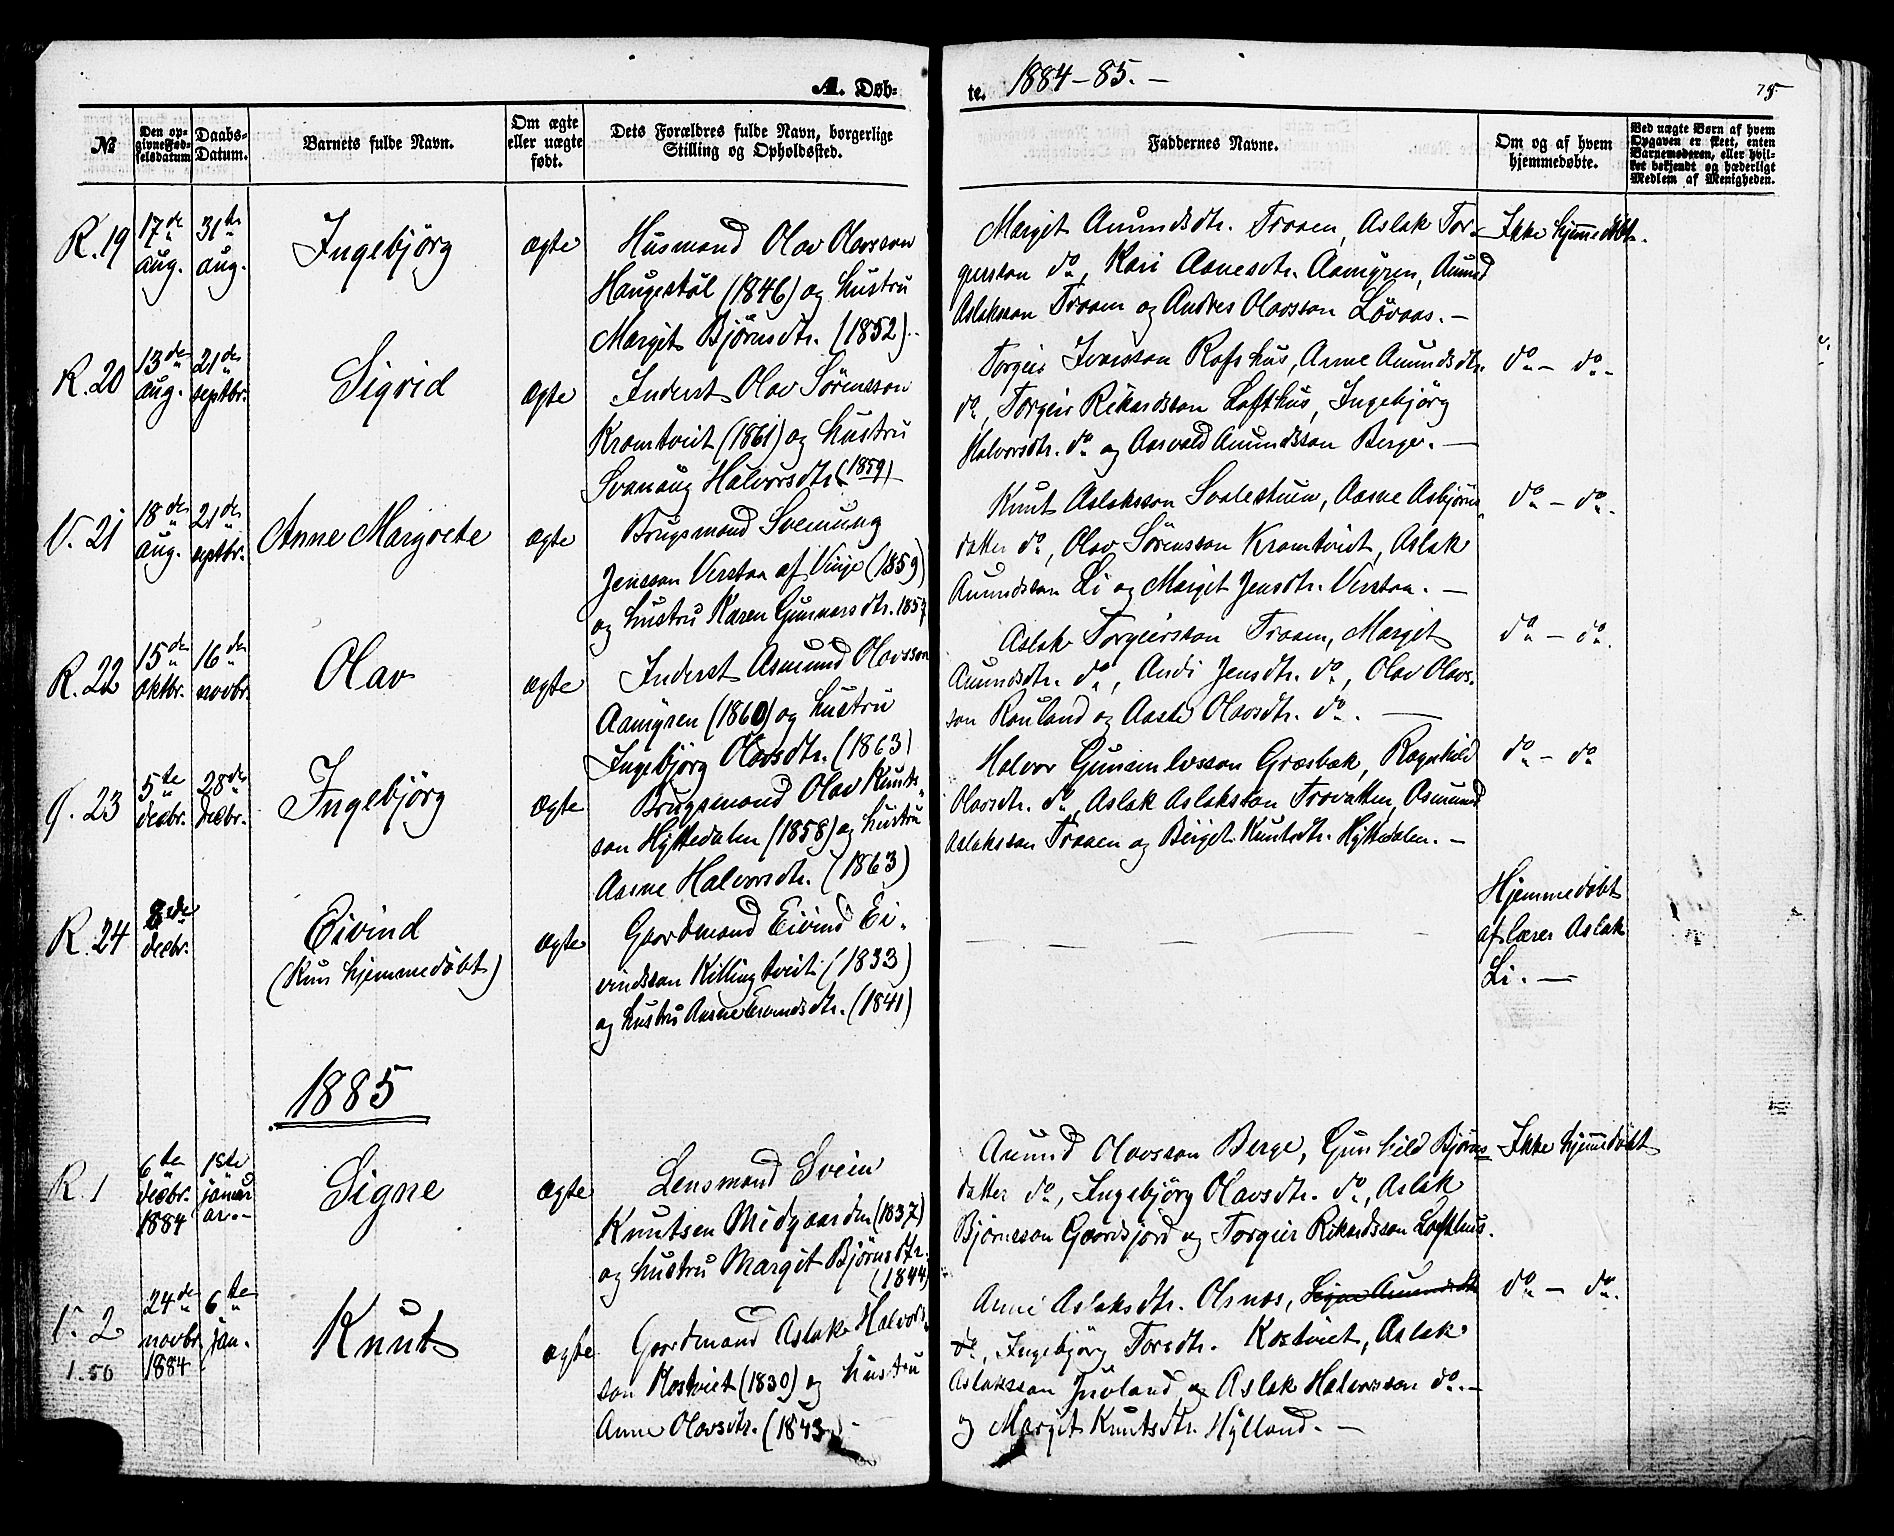 A. Døb-
te. 1884-85. -
75
№
Den op-
givne Fød-
selsdatum
Daabs-
Datum.
Barnets fulde Navn.
Om ægte
eller uægte
født.
Dets Forældres fulde Navn, borgerlige
Stilling og Opholdssted.
Faddernes Navne.
Om og af hvem
hjemmedøbte.
Ved uægte Børn af hvem
Opgaven er skeet, enten
Barnemoderen, eller hvil-
ket bekjendt og hæderligt
Medlem af Menigheden.
R. 19
17de
aug.
31te
aug.
Ingebjørg
ægte
Husmand Olav Olavsson
Haugestøl (1846) og hustru
Margit Bjørnsdtr. (1852).
Margit Aumundsdtr. Traaen, Aslak Tor-
geirsson do, Kari Aanesdtr. Aamyren, Aumund
Aslaksson Traaen og Andres Olavsson Løvaas. -
Ikke hjemmedøbt.
R. 20
13de
aug.
21de
septbr.
Sigrid
ægte
Inderst Olav Sørensson
Kromtveit (1861) og hustru
Svanaug Halvorsdtr. (1859) -
Torgeir Ivarsson Rofshus, Anne Aumundsdtr.
do, Torgeir Rikardsson Lofthus, Ingebjørg
Halvorsdtr. do og Aasvald Aumundsson Berge. -
do - do -
V. 21
18de
aug.
21de
septbr.
Anne Margrete
ægte
Brugsmand Sveinung
Jensson Verstaa af Vinje (1859)
og hustru Karen Gunnarsdtr. 1857
Knut Aslaksson Svalestuen, Aasne Asbjørns-
datter do, Olav Sørensson Kromtveit, Aslak
Aumundsson Li og Margit Jensdtr. Verstaa. -
do - do.
R. 22
15de
oktbr.
16de
novbr.
Olav
ægte
Inderst Asmund Olavsson
Aamyren (1860) og hustru
Ingebjørg Olavsdtr. (1863)
Aslak Torgeirsson Traaen, Margit
Aumundsdtr. do, Andi Jensdtr. do, Olav Olavs-
son Rauland og Aaste Olavsdtr. do. -
do - do.
G. 23
5te
decbr.
28de
decbr.
Ingebjørg
ægte
Brugsmand Olav Knuts-
son Hyttedalen (1858) og hustru
Aasne Halvorsdtr. (1863)
Halvor Gunnulvsson Græsbæk, Ragnhild
Olavsdtr. do, Aslak Aslaksson Trovatten, Asmund
Aslaksson Traaen og Berget Knutsdtr. Hyttedalen. -
do - do
R. 24
8de
decbr.
Eivind
(Kun hjemmedøbt)
ægte
Gaardmand Eivind Ei-
vindsson Killingtveit (1833)
og hustru Aasne Evindsdtr. (1841)
Hjemmedøbt
af lærer Aslak
Li. -
1885
R. 1
6te
decbr.
1884
1ste
januar
Signe
ægte
Lensmand Svein
Knutsen Midgaarden (1837)
og hustru Margit Bjørnsdtr.
(1844)
Aumund Olavsson Berge, Gunhild Bjørns-
datter do, Ingebjørg Olavsdtr. do, Aslak
Bjørnsson Gaardsjord og Torgeir Rikardsson Lofthus.
Ikke hjemmedøbt
V. 2
1.50
24de
novbr.
1884
6te
jan.
Knut
ægte
Gaardmand Aslak Halvors-
son Kostveit (1830) og hustru
Anne Olavsdtr. (1843) -
Anne Aslaksdtr. Olsnes, Signe Aumundsdtr.
do, Ingebjørg Toredtr. Kostveit, Aslak
Aslaksson Juvland og Aslak Halvorsson do. -
og Margit Knutsdtr. Hylland. -
do - do.